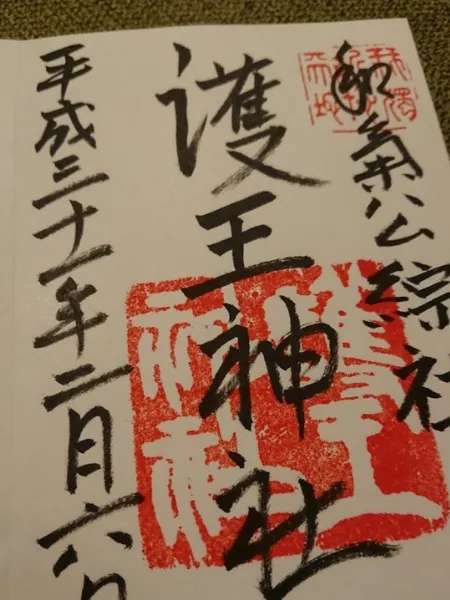 和氣公綜社
護王神社
平成三十一年二月六日
護王神社